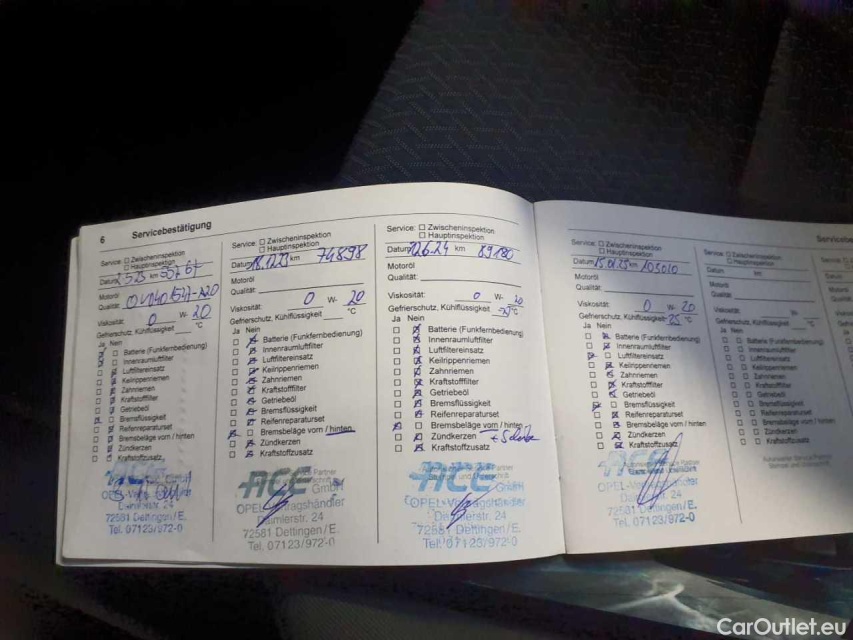 6 Servicebestätigung
Service: Zwischeninspektion
Hauptinspektion
Datum km
Motoröl
Qualität:
Viskosität: 0 W- 20
Gefrierschutz, Kühlflüssigkeit °C
Ja Nein
Batterie (Funkfernbedienung)
Innenraumluftfilter
Luftfiltereinsatz
Keilrippenriemen
Zahnriemen
Kraftstofffilter
Getriebeöl
Bremsflüssigkeit
Reifenreparaturset
Bremsbeläge vorn / hinten
Zündkerzen
Kraftstoffzusatz
ACE
72581 Dettingen/E.
Tel. 07123/972-0
Service: Zwischeninspektion
Hauptinspektion
Datum 18.12.23 km 74898
Motoröl
Qualität:
Viskosität: 0 W- 20
Gefrierschutz, Kühlflüssigkeit °C
Ja Nein
Batterie (Funkfernbedienung)
Innenraumluftfilter
Luftfiltereinsatz
Keilrippenriemen
Zahnriemen
Kraftstofffilter
Getriebeöl
Bremsflüssigkeit
Reifenreparaturset
Bremsbeläge vorn / hinten
Zündkerzen
Kraftstoffzusatz
ACE
GmbH
OPEL-Vertragshändler
Daimlerstr. 24
72581 Dettingen/E.
Tel. 07123/972-0
Service: Zwischeninspektion
Hauptinspektion
Datum km 89180
Motoröl
Qualität:
Viskosität: 0 W- 20
Gefrierschutz, Kühlflüssigkeit °C
Ja Nein
Batterie (Funkfernbedienung)
Innenraumluftfilter
Luftfiltereinsatz
Keilrippenriemen
Zahnriemen
Kraftstofffilter
Getriebeöl
Bremsflüssigkeit
Reifenreparaturset
Bremsbeläge vorn / hinten
Zündkerzen
Kraftstoffzusatz
ACE
OPEL-Vertragshändler
Daimlerstr. 24
72581 Dettingen/E.
Tel. 07123/972-0
Service: Zwischeninspektion
Hauptinspektion
Datum km 103010
Motoröl
Qualität:
Viskosität: 0 W- 20
Gefrierschutz, Kühlflüssigkeit -25 °C
Ja Nein
Batterie (Funkfernbedienung)
Innenraumluftfilter
Luftfiltereinsatz
Keilrippenriemen
Zahnriemen
Kraftstofffilter
Getriebeöl
Bremsflüssigkeit
Reifenreparaturset
Bremsbeläge vorn / hinten
Zündkerzen
Kraftstoffzusatz
72581 Dettingen/E.
Tel. 07123/972-0
Service: Zwischeninspektion
Hauptinspektion
Datum km
Motoröl
Qualität:
Viskosität: W-
Gefrierschutz, Kühlflüssigkeit °C
Ja Nein
Batterie (Funkfernbedienung)
Innenraumluftfilter
Luftfiltereinsatz
Keilrippenriemen
Zahnriemen
Kraftstofffilter
Getriebeöl
Bremsflüssigkeit
Reifenreparaturset
Bremsbeläge vorn / hinten
Zündkerzen
Kraftstoffzusatz
CarOutlet.eu